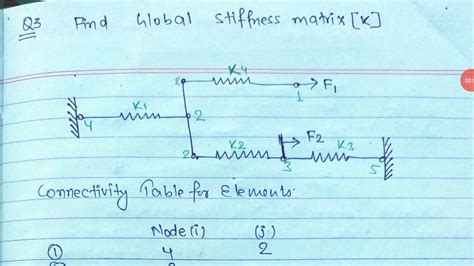 Q3 Find Global Stiffness matrix [K]
2 K4 1 → F1
4 K1 2
2 K2 3 → F2 K3 5
Connectivity Table for Elements:
Node(i) (j)
① 4 2